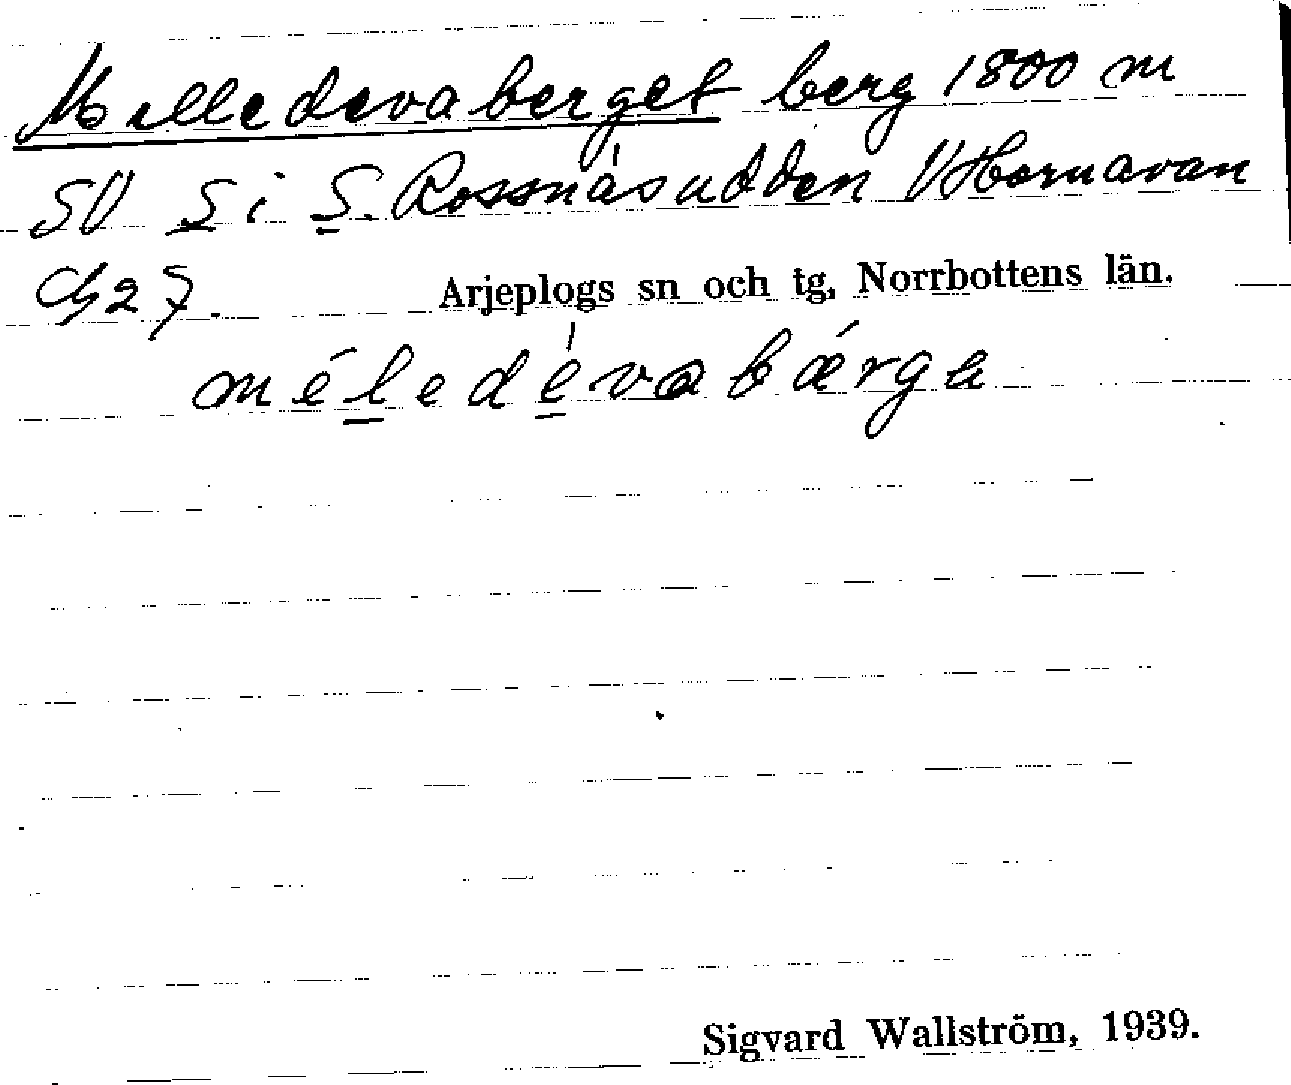 Melledevaberget berg 1800 m
SV S i S. Rossnäsudden V Hornavan
Cg 27. Arjeplogs sn och tg, Norrbottens län.
méledévabǽrge
Sigvard Wallström, 1939.